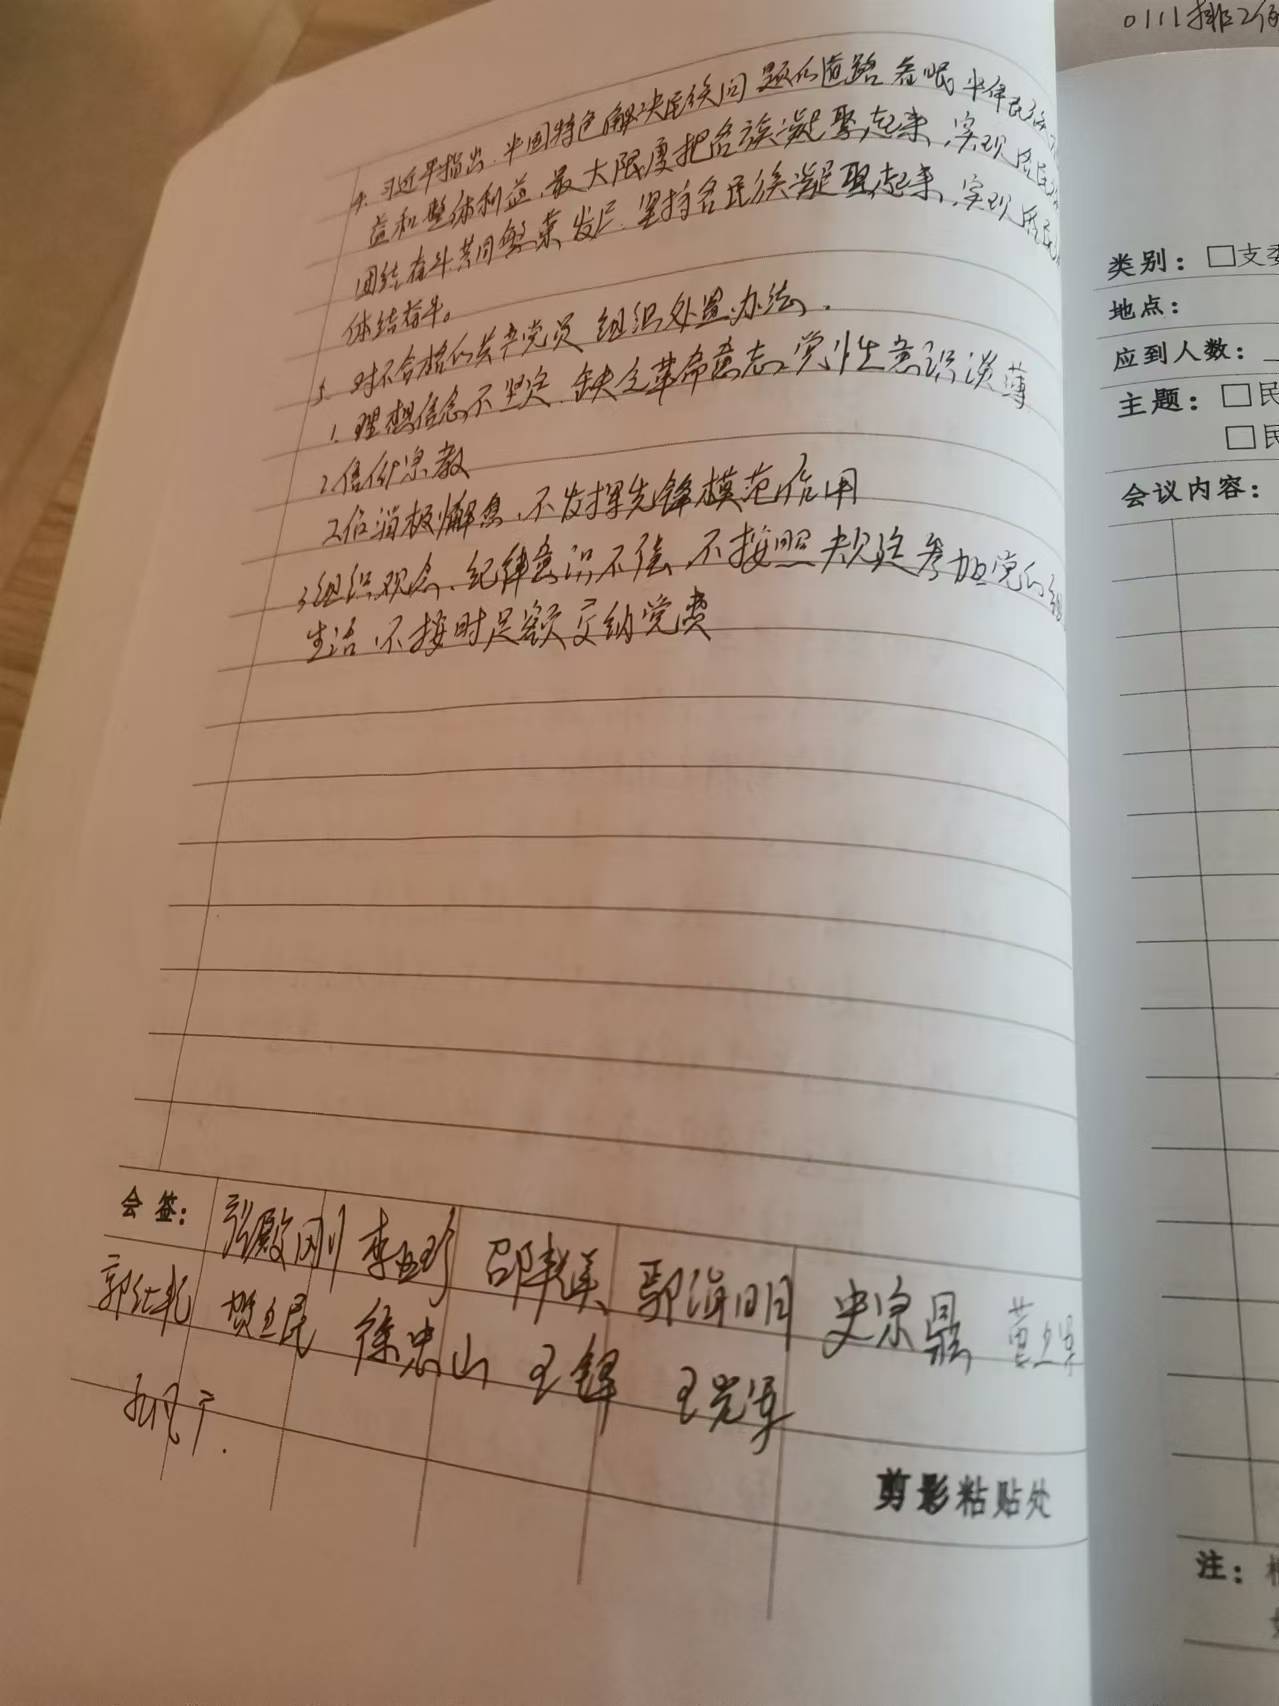 0111排2
4. 习近平指出.中国特色解决民族问题的道路
益和整体利益.最大限度把各族凝聚起来,实现各民
团结奋斗共同繁荣发展.坚持各民族凝聚起来,实现各民
体结奋斗。
5. 对不合格的共产党员 组织处置办法.
1. 理想信念不坚定.缺乏革命意志.党性意识淡薄
2.信仰宗教
工作消极懈怠,不发挥先锋模范作用
3.组织观念、纪律意识不强 不按照规定参加党的组
生活 不按时足额交纳党费
会签: 张殿刚 李玉珍 鄂海明 史宗鼎
徐忠山 王铎 王党军
剪影粘贴处
类别:□支委
地点:
应到人数:
主题:□民
□民
会议内容:
注: